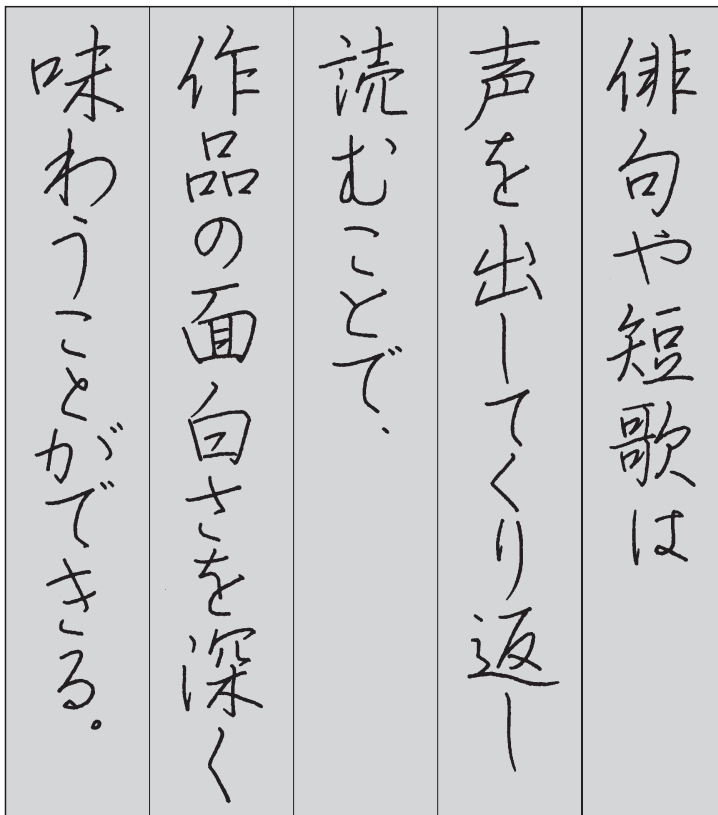 俳句や短歌は
声を出してくり返し
読むことで、
作品の面白さを深く
味わうことができる。